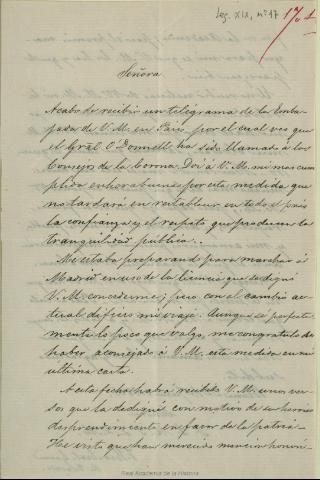 Leg. XIX, nº 17
17-1
Señora
Acabo de recibir un telégrama de la Emba-
jada de V. M. en Paris por el cual veo que
el Gral. O'Donnell ha sido llamado á los
Consejos de la Corona. Doi á V. M. mi mas cum-
plida enhorabuena por esta medida que
no tardará en restablecer en todo el pais
la confianza y el respeto que producen la
tranquilidad publica..
Me estaba preparando para marchar á
Madrid en uso de la licencia que se dignó
V. M. concederme; pero con el cambio ac-
tual difiero mi viaje. Aunque sé perfecta-
mente lo poco que valgo, me congratulo de
haber aconsejado á V. M. esta medida en mi
ultima carta.
A esta fecha habrá recibido V. M. unos ver-
sos que la dediqué con motivo de su hermoso
desprendimiento en favor de la patria.
He visto que han merecido mencion honori-
Real Academia de la Historia